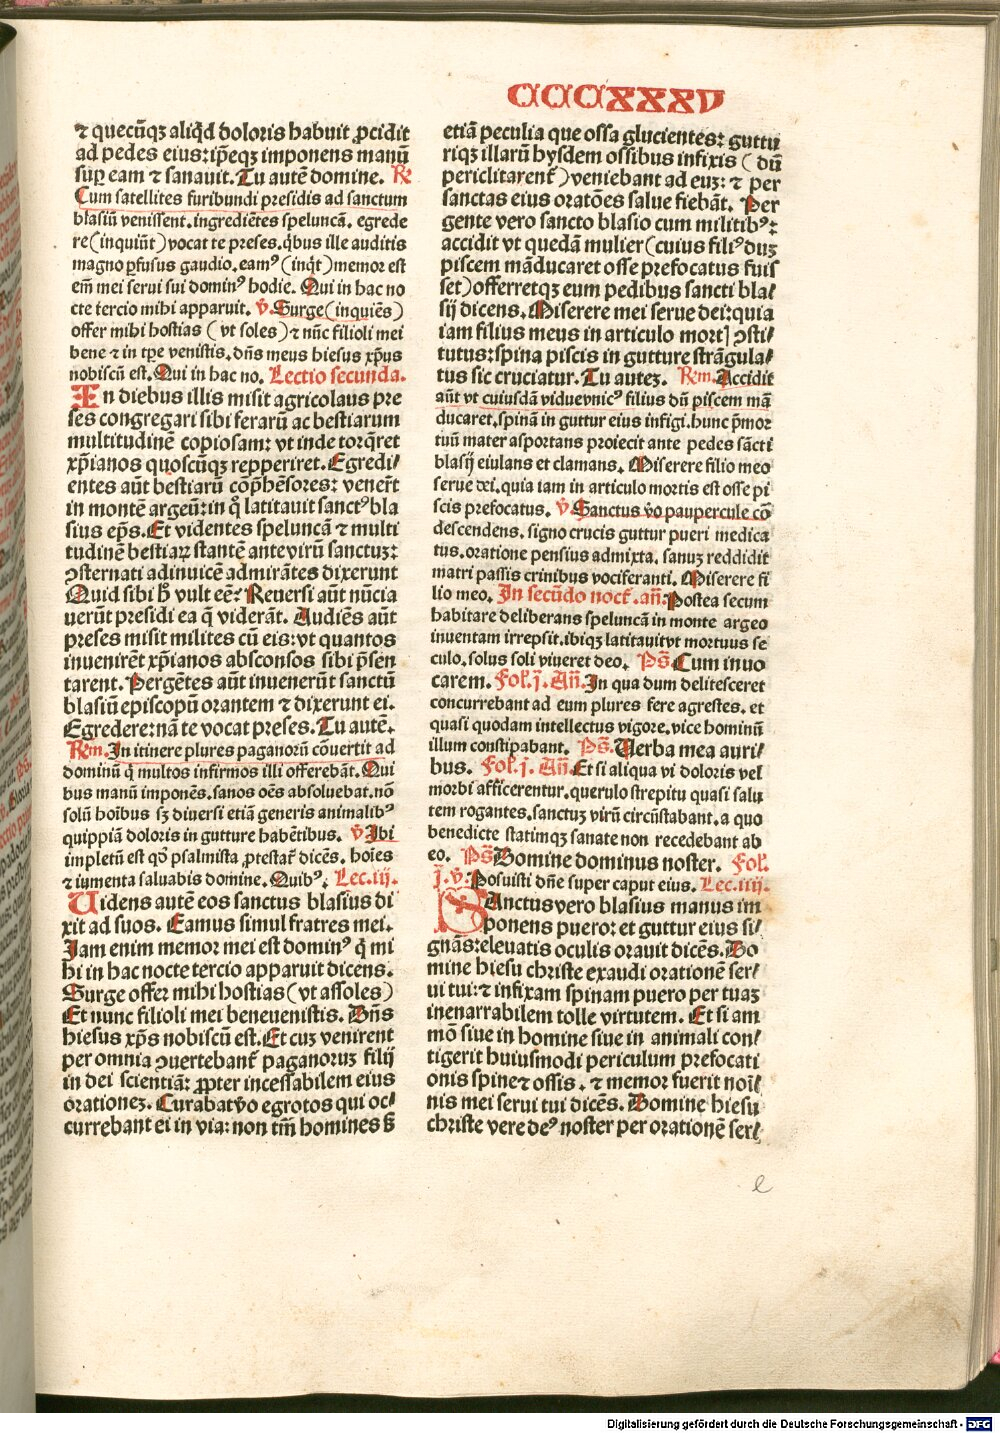 CCCXXXV
⁊ quecūqꝫ aliq̇d doloris habuit ꝓcidit
ad pedes eius: ip̄eqꝫ imponens manū
suꝑ eam ⁊ sanauit. Tu autē domine. R͛
Cum satellites furibundi presidis ad sanctum
blasiū venissent. ingrediētes speluncā. egrede
re (inquiūt) vocat te preses. q̇bus ille auditis
magno ꝑfusus gaudio. eamꝰ (inq̇t) memor est
em̄ mei serui sui dominꝰ hodie. Qui in hac no
cte tercio mihi apparuit. v̄. Surge (inquiēs)
offer mihi hostias (vt soles) ⁊ nūc filioli mei
bene ⁊ in tꝑe venistis. dn̄s meus hiesus xp̄us
nobiscū est. Qui in hac no. Lectio secunda.
In diebus illis misit agricolaus pre
ses congregari sibi ferarū ac bestiarum
multitudinē copiosam: vt inde torq̄ret
xp̄ianos quoscūqꝫ repperiret. Egredi⸗
entes aūt bestiarū cōp̄hēsores: venerūt
in montē argeū: in q̊ latitauit sanctꝰ bla
sius ep̄s. Et videntes speluncā ⁊ multi
tudinē bestiaꝝ stantē ante virū sanctuꝫ:
ꝯsternati adinuicē admirātes dixerunt
Quid sibi h̊ vult eē? Reuersi aūt nūcia
uerūt presidi ea q̄ viderāt. Audiēs aūt
preses misit milites cū eis: vt quantos
inuenirēt xp̄ianos absconsos sibi p̄sen
tarent. Pergētes aūt inuenerūt sanctū
blasiū episcopū orantem ⁊ dixerunt ei.
Egredere: nā te vocat preses. Tu autē.
Rm. In itinere plures paganorū cōuertit ad
dominū q̄ multos infirmos illi offerebāt. Qui
bus manū imponēs. sanos oēs absoluebat. nō
solū hoībus sꝫ diuersi etiā generis animalibꝰ
quippiā doloris in gutture habētibus. v̄ Ibi
impletū est qḋ psalmista ꝓtestat᷑ dicēs. hoīes
⁊ iumenta saluabis domine. Quibꝰ. Lec. iij.
Uidens autē eos sanctus blasius di
xit ad suos. Eamus simul fratres mei.
Jam enim memor mei est dominꝰ q̇ mi
hi in hac nocte tercio apparuit dicens.
Surge offer mihi hostias (vt assoles)
Et nunc filioli mei beneuenistis. Dn̄s
hiesus xp̄s nobiscū est. Et cuꝫ venirent
per omnia ꝯuertebant᷑ paganoruꝫ filij
in dei scientiā: ꝓpter incessabilem eius
orationeꝫ. Curabat v̊o egrotos qui oc⸗
currebant ei in via: non tm̄ homines sꝫ
etiā peculia que ossa glucientes: guttu
riqꝫ illarū hysdem ossibus infixis (dū
periclitarent᷑) veniebant ad euꝫ: ⁊ per
sanctas eius oratōes salue fiebāt. Per
gente vero sancto blasio cum militibꝰ:
accidit vt quedā mulier (cuius filiꝰ duꝫ
piscem māducaret osse prefocatus fuis
set) offerretqꝫ eum pedibus sancti bla⸗
sij dicens. Miserere mei serue dei: quia
iam filius meus in articulo mortꝭ ꝯsti⸗
tutus: spina piscis in gutture strāgula⸗
tus sic cruciatur. Tu auteꝫ. Rm. Accidit
aūt vt cuiusdā vidue vnicꝰ filius dū piscem mā
ducaret. spinā in guttur eius infigi. hunc p̄mor
tuū mater asportans proiecit ante pedes sācti
blasij eiulans et clamans. Miserere filio meo
serue dei. quia iam in articulo mortis est osse pi
scis prefocatus. v̄ Sanctus v̊o paupercule cō
descendens. signo crucis guttur pueri medica
tus. oratione pensius admixta. sanuꝫ reddidit
matri passis crinibus vociferanti. Miserere fi
lio meo. In secūdo noct᷑. añ. Postea secum
habitare deliberans speluncā in monte argeo
inuentam irrepsit. ibiqꝫ latitauit vt mortuus se
culo. solus soli viueret deo. Ps̄. Cum inuo
carem. Fol. j. Añ. In qua dum delitesceret
concurrebant ad eum plures fere agrestes. et
quasi quodam intellectus vigore. vice hominū
illum constipabant. Ps̄. Uerba mea auri⸗
bus. Fol. j. Añ. Et si aliqua vi doloris vel
morbi afficerentur. querulo strepitu quasi salu
tem rogantes. sanctuꝫ virū circūstabant. a quo
benedicte statimqꝫ sanate non recedebant ab
eo. Ps̄ Domine dominus noster. Fol.
j. v̄. Posuisti dn̄e super caput eius. Lec. iiij.
SAnctus vero blasius manus im
ponens puero: et guttur eius si⸗
gnās: eleuatis oculis orauit dicēs. Do
mine hiesu christe exaudi orationē ser⸗
ui tui: ⁊ infixam spinam puero per tuaꝫ
inenarrabilem tolle virtutem. Et si am
mō siue in homine siue in animali con⸗
tigerit huiusmodi periculum prefocati
onis spine ⁊ ossis. ⁊ memor fuerit noī⸗
nis mei serui tui dicēs. Domine hiesu
christe vere deꝰ noster per orationē ser⸗
e
Digitalisierung gefördert durch die Deutsche Forschungsgemeinschaft - DFG